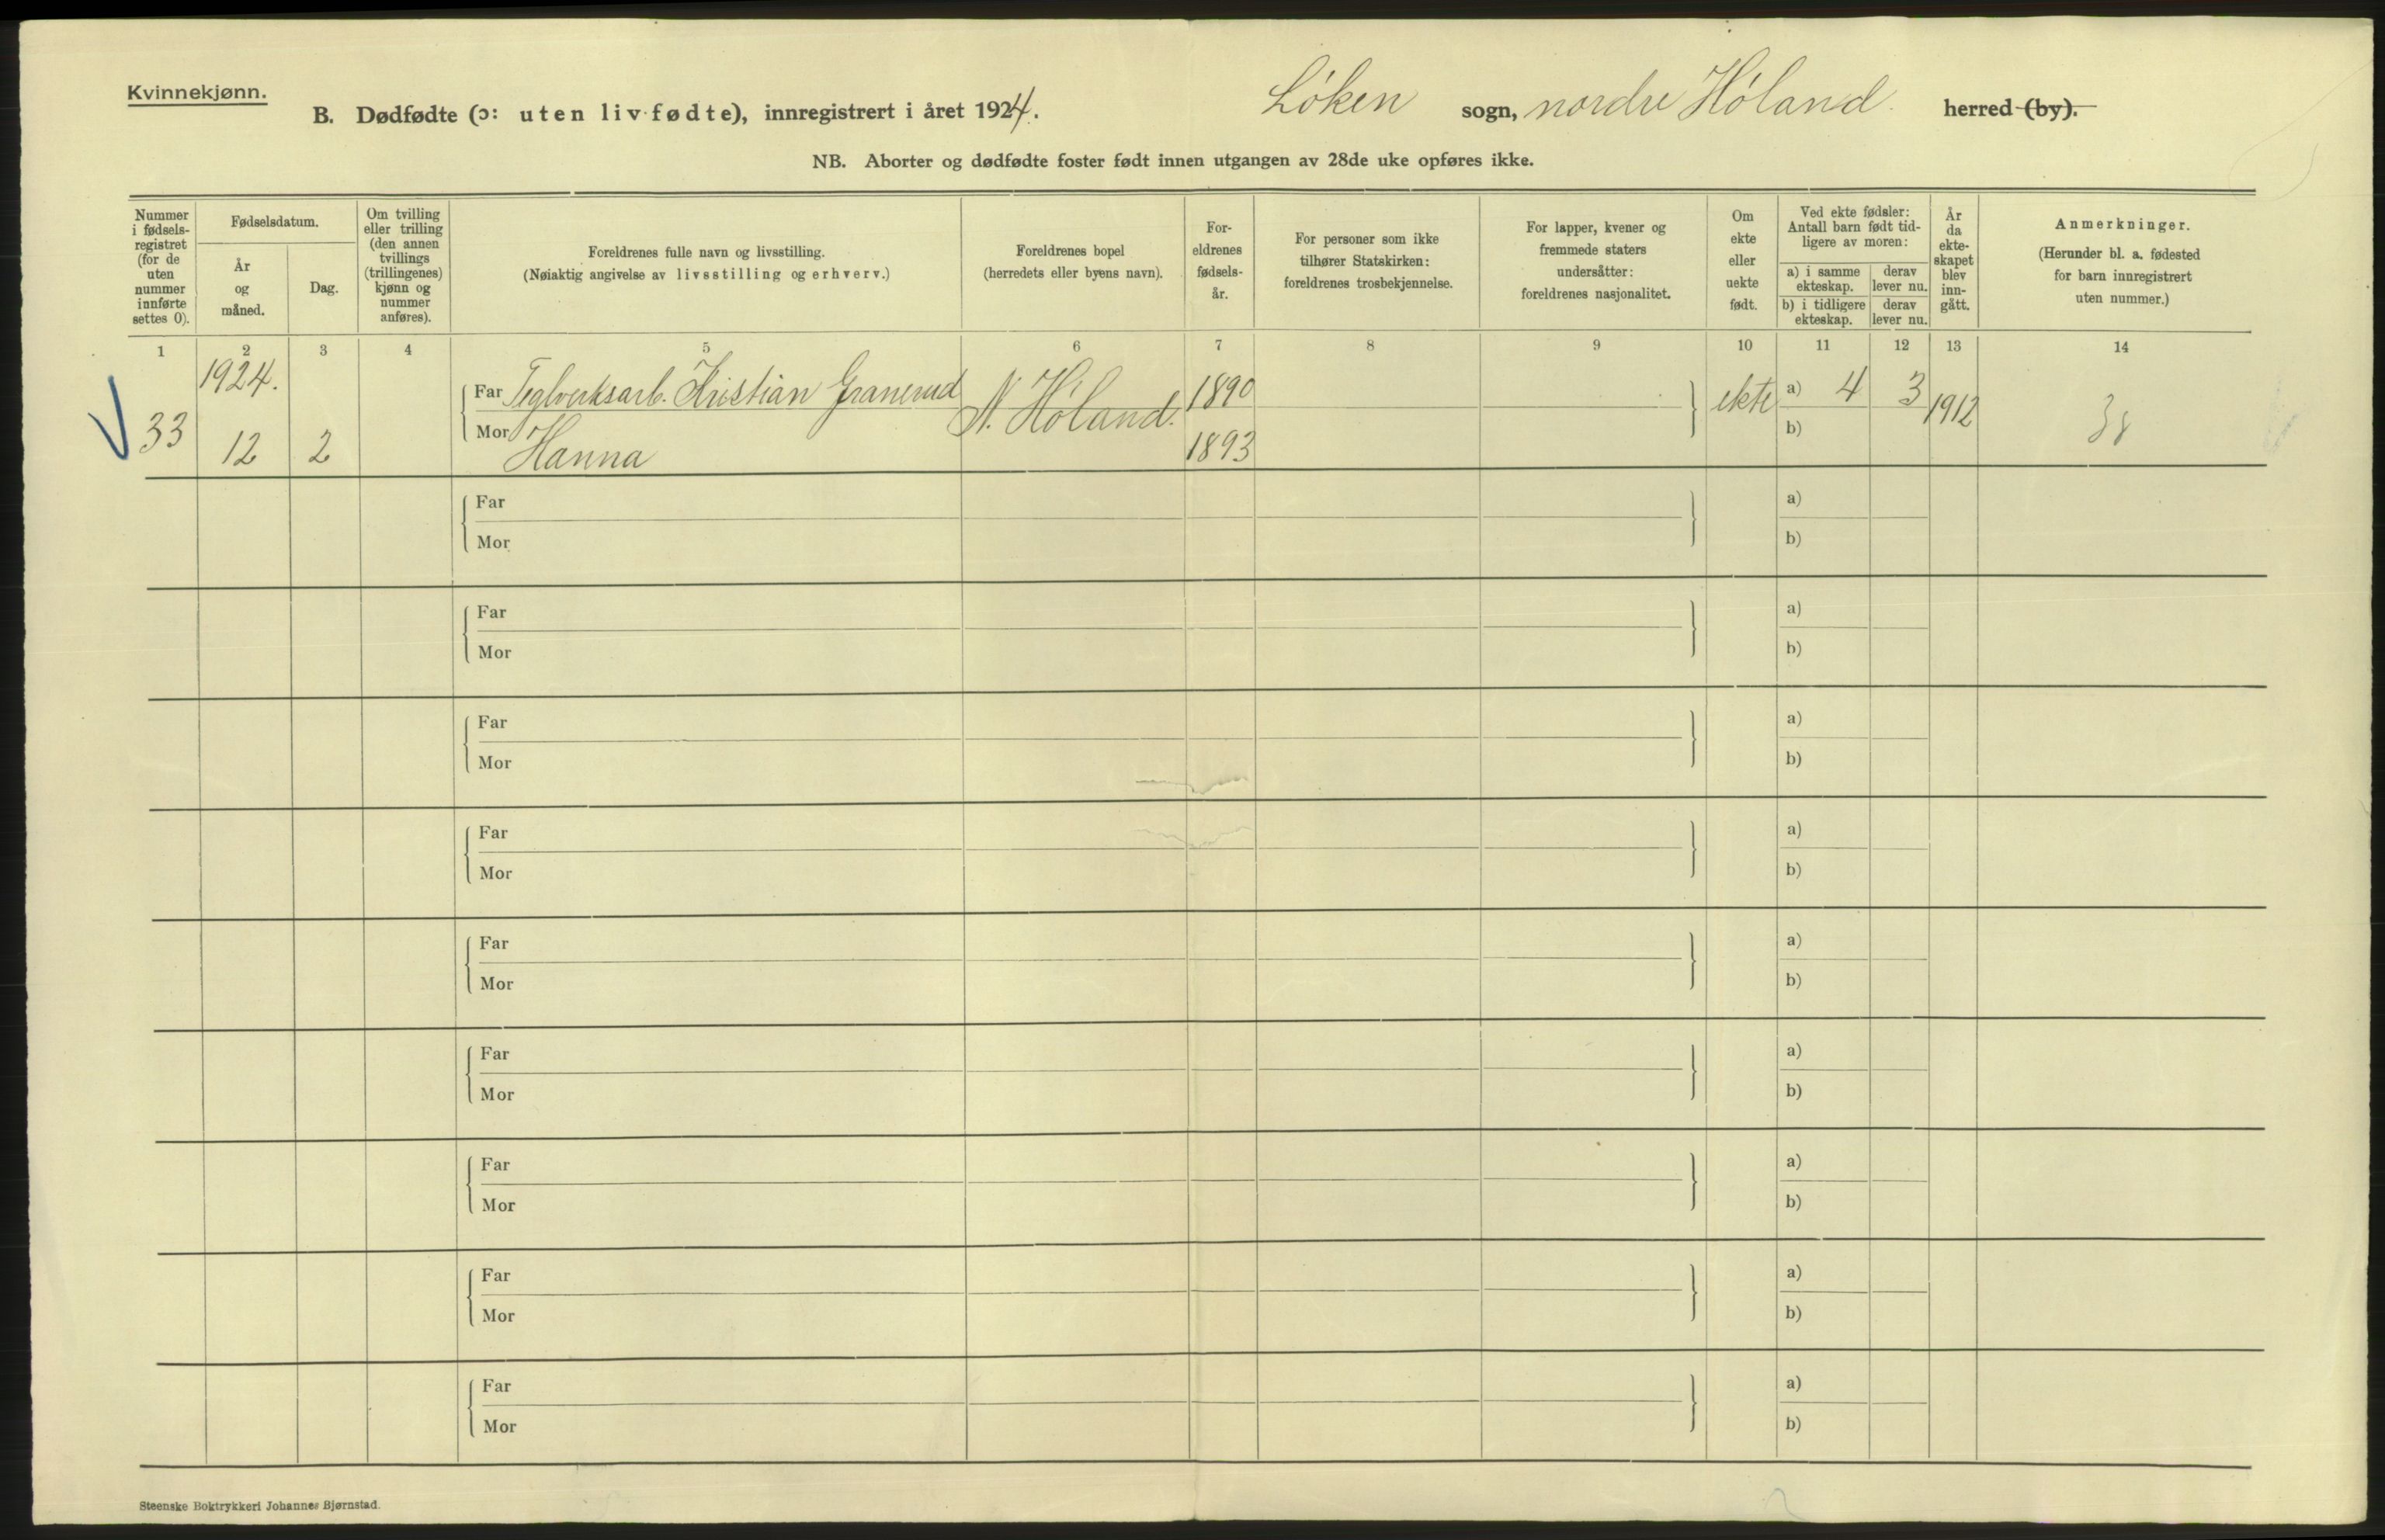 Kvinnekjønn.
B. Dødfødte (ɔ: uten liv fødte), innregistrert i året 1924.
Löken sogn, nordre Höland herred (by).
NB. Aborter og dødfødte foster født innen utgangen av 28de uke opføres ikke.
Nummer
i fødsels-
registret
(for de
uten
nummer
innførte
settes 0).
Fødselsdatum.
År
og
måned.
Dag.
Om tvilling
eller trilling
(den annen
tvillings
(trillingenes)
kjønn og
nummer
anføres).
Foreldrenes fulle navn og livsstilling.
(Nøiaktig angivelse av livsstilling og erhverv.)
Foreldrenes bopel
(herredets eller byens navn).
For-
eldrenes
fødsels-
år.
For personer som ikke
tilhører Statskirken:
foreldrenes trosbekjennelse.
For lapper, kvener og
fremmede staters
undersåtter:
foreldrenes nasjonalitet.
Om
ekte
eller
uekte
født.
Ved ekte fødsler:
Antall barn født tid-
ligere av moren:
a) i samme
ekteskap.
derav
lever nu.
b) i tidligere
ekteskap.
derav
lever nu.
År
da
ekte-
skapet
blev
inn-
gått.
Anmerkninger.
(Herunder bl. a. fødested
for barn innregistrert
uten nummer.)
1 2 3 4 5 6 7 8 9 10 11 12 13 14
1924.
33 12 2
Far Teglverksarb. Kristian Granerud
Mor
Hanna
N. Höland.
1890
1893
ekte
a) 4 3
b)
1912
38
Far a)
Mor b)
Far a)
Mor b)
Far a)
Mor b)
Far a)
Mor b)
Far a)
Mor b)
Far a)
Mor b)
Far a)
Mor b)
Far a)
Mor b)
Far a)
Mor b)
Steenske Boktrykkeri Johannes Bjørnstad.